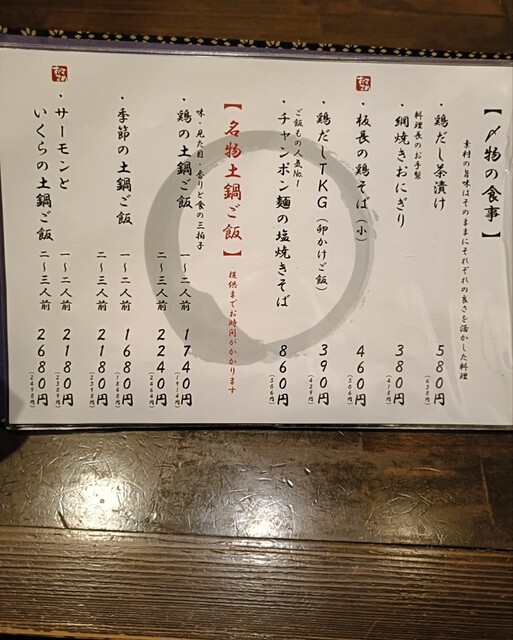 【〆物の食事】
素材の旨味はそのままにそれぞれの良さを活かした料理
鶏だし茶漬け 580円
(638円)
料理長のお手製
網焼きおにぎり 380円
(418円)
板長の鶏そば(小) 460円
(506円)
鶏だしTKG(卵かけご飯) 390円
(429円)
ご飯もの人気No1
チャンポン麺の塩焼きそば 860円
(506円)
【名物土鍋ご飯】 提供までお時間がかかります
味・見た目・香りと食の三拍子
鶏の土鍋ご飯 一～二人前 1740円
(1914円)
二～三人前 2240円
(2464円)
季節の土鍋ご飯 一～二人前 1680円
(1848円)
二～三人前 2180円
(2398円)
サーモンと
いくらの土鍋ご飯 一～二人前 2180円
(2398円)
二～三人前 2680円
(2948円)